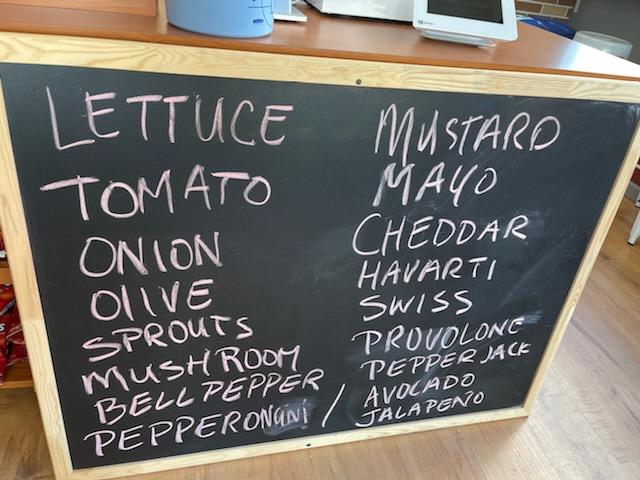 LETTUCE
TOMATO
ONION
OLIVE
SPROUTS
MUSHROOM
BELL PEPPER
PEPPERONCINI /
MUSTARD
MAYO
CHEDDAR
HAVARTI
SWISS
PROVOLONE
PEPPER JACK
AVOCADO
JALAPEÑO